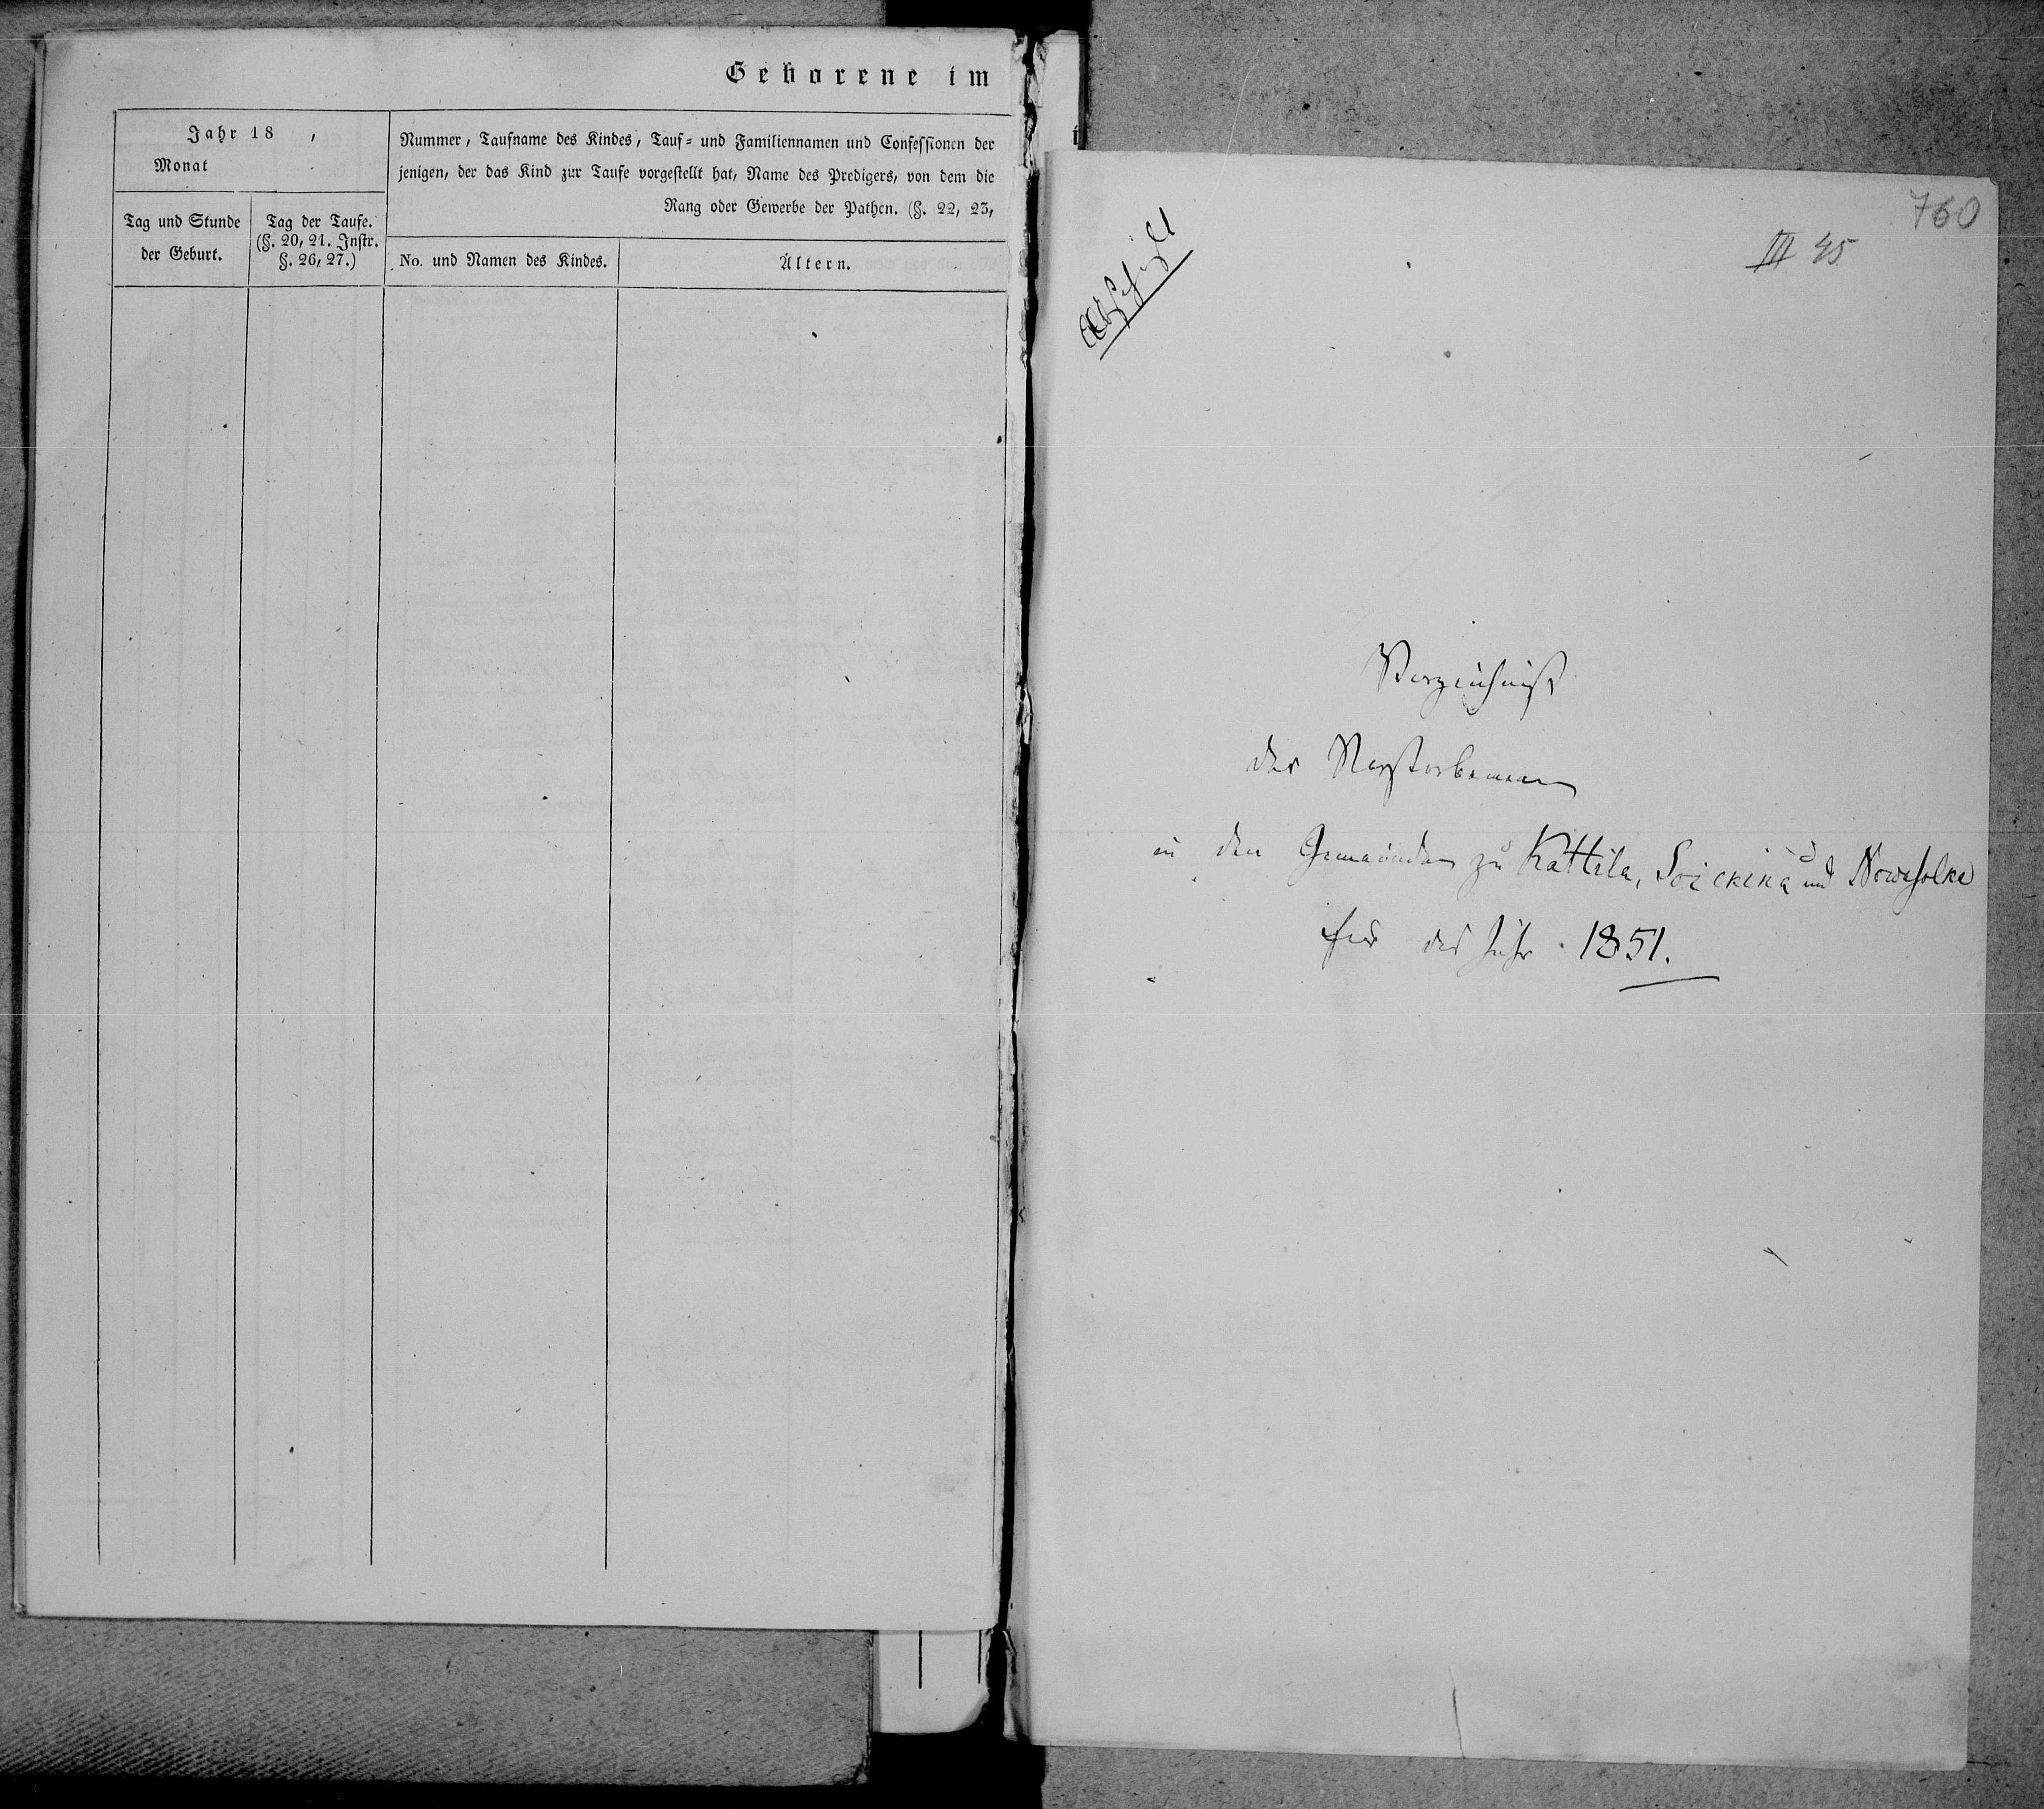 Geborene im
Jahr 18 ,
Monat
Nummer, Taufname des Kindes, Tauf- und Familiennamen und Confessionen der
jenigen, der das Kind zur Taufe vorgestellt hat, Name des Predigers, von dem die
Rang oder Gewerbe der Pathen. (§. 22, 23,
Tag und Stunde
der Geburt.
Tag der Taufe.
(§. 20, 21. Instr.
§. 26, 27.)
No. und Namen des Kindes.
Ältern.
760
III 45
Verzeichniß
der Verstorbenen
in den Gemeinden zu Kattila, Soickina und Nowasolka
für das Jahr 1851.